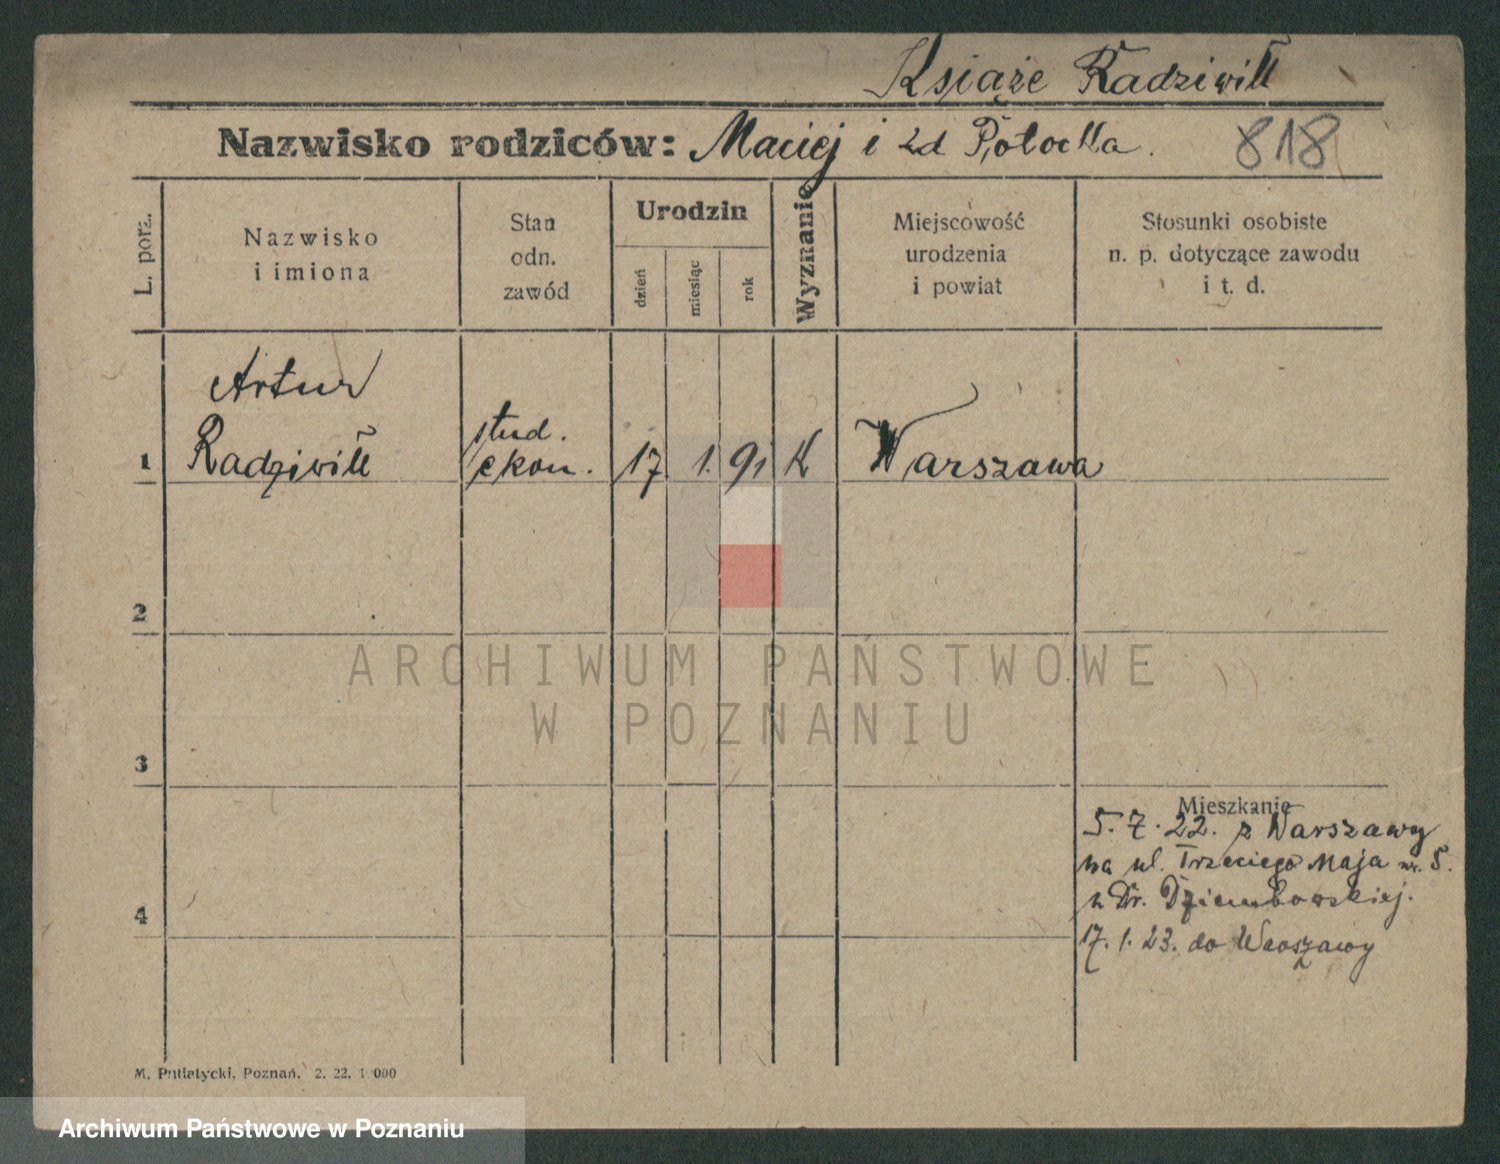 Książe Radziwill
Nazwisko rodziców: Maciej i zd Potocka. 818
L. porz.
Nazwisko
i imiona
Stan
odn.
zawód
Urodzin
dzień
miesiąc
rok
Wyznanie
Miejscowość
urodzenia
i powiat
Stosunki osobiste
n. p. dotyczące zawodu
i t. d.
Artur
stud.
1 Radziwill ekon. 17 1. 91 K Warszawa
2
ARCHIWUM PAŃSTWOWE
W POZNANIU
3
Mieszkanie
5. 7. 22. z Warszawy
na ul. Trzeciego Maja nr. 5.
u Dr. Dziembowskiej.
4
17. 1. 23. do Warszawy
M. Putiatycki, Poznań, 2. 22. 1 000
Archiwum Państwowe w Poznaniu